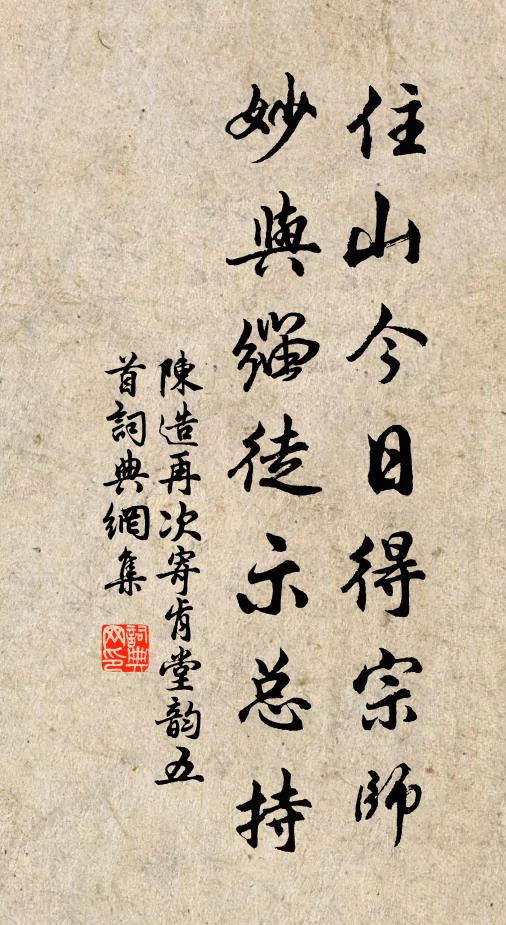 住山今日得宗師
妙與緇徒示总持
陳造再次寄肯堂韵五
首詞典網集
詞典网印